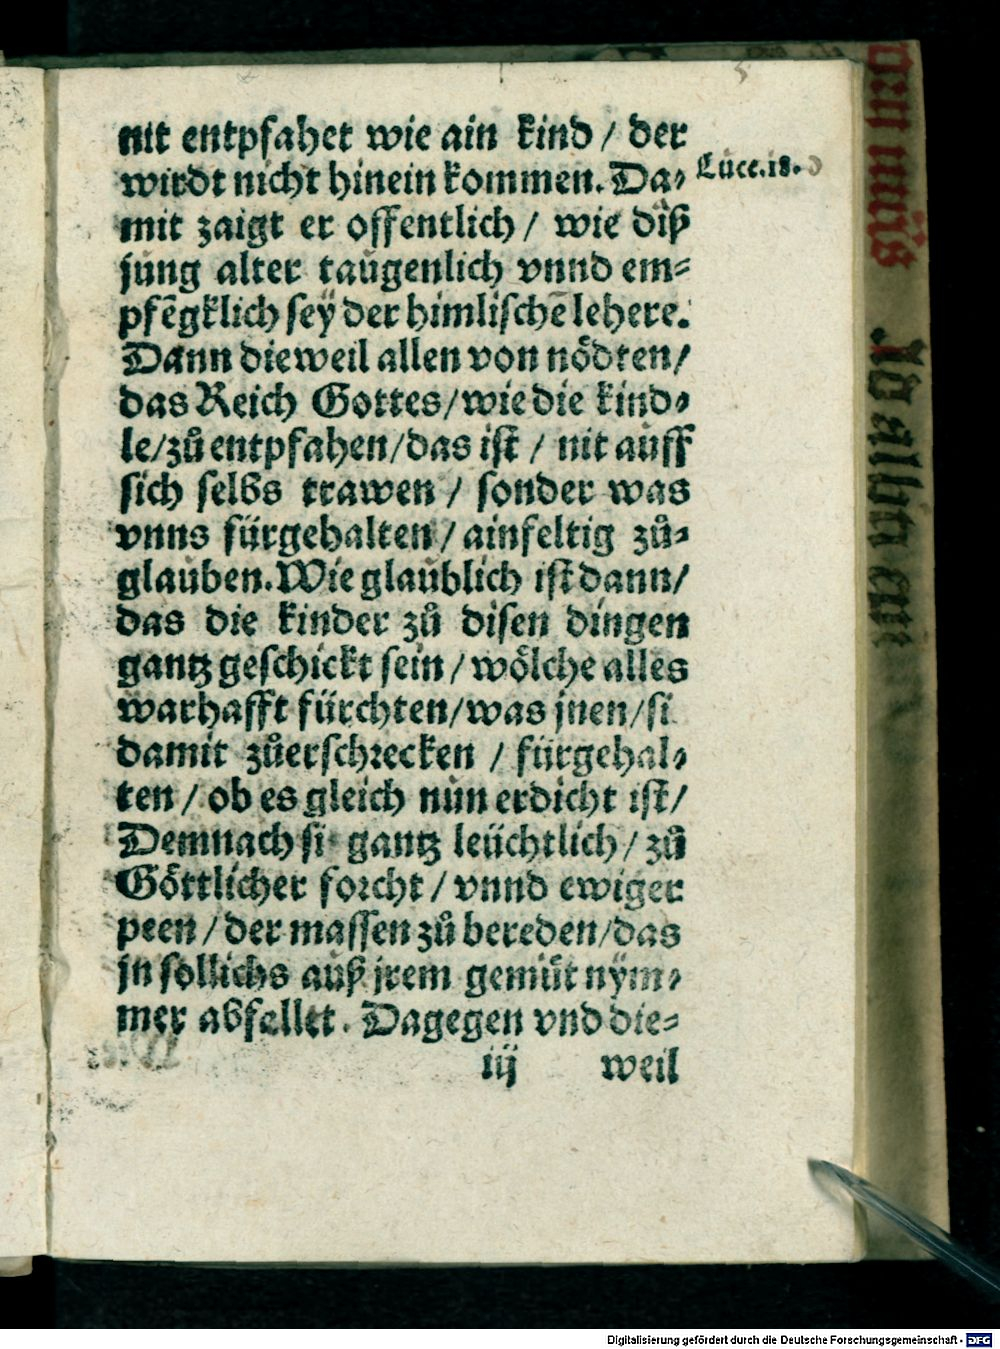 nit entpfahet wie ain kind / der
wirdt nicht hinein kommen. Da⸗
Lůce.18.
mit zaigt er offentlich / wie diß
jüng alter taügenlich vnnd em⸗
pfēgklich seÿ der himlischē lehere.
Dann dieweil allen von nödten /
das Reich Gottes / wie die kind⸗
le / zů entpfahen / das ist / nit auff
sich selbs trawen / sonder was
vnns fürgehalten / ainfeltig zů⸗
glauben. Wie glaüblich ist dann /
das die kinder zů disen dingen
gantz geschickt sein / wölche alles
warhafft fürchten / was jnen / si
damit zůerschrecken / fürgehal⸗
ten / ob es gleich nün erdicht ist /
Demnach si gantz leüchtlich / zů
Göttlicher forcht / vnnd ewiger
peen / der massen zů bereden / das
jn sollichs auß jrem gemüt nÿm⸗
mer abfallet. Dagegen vnd die⸗
iij weil
Digitalisierung gefördert durch die Deutsche Forschungsgemeinschaft - DFG